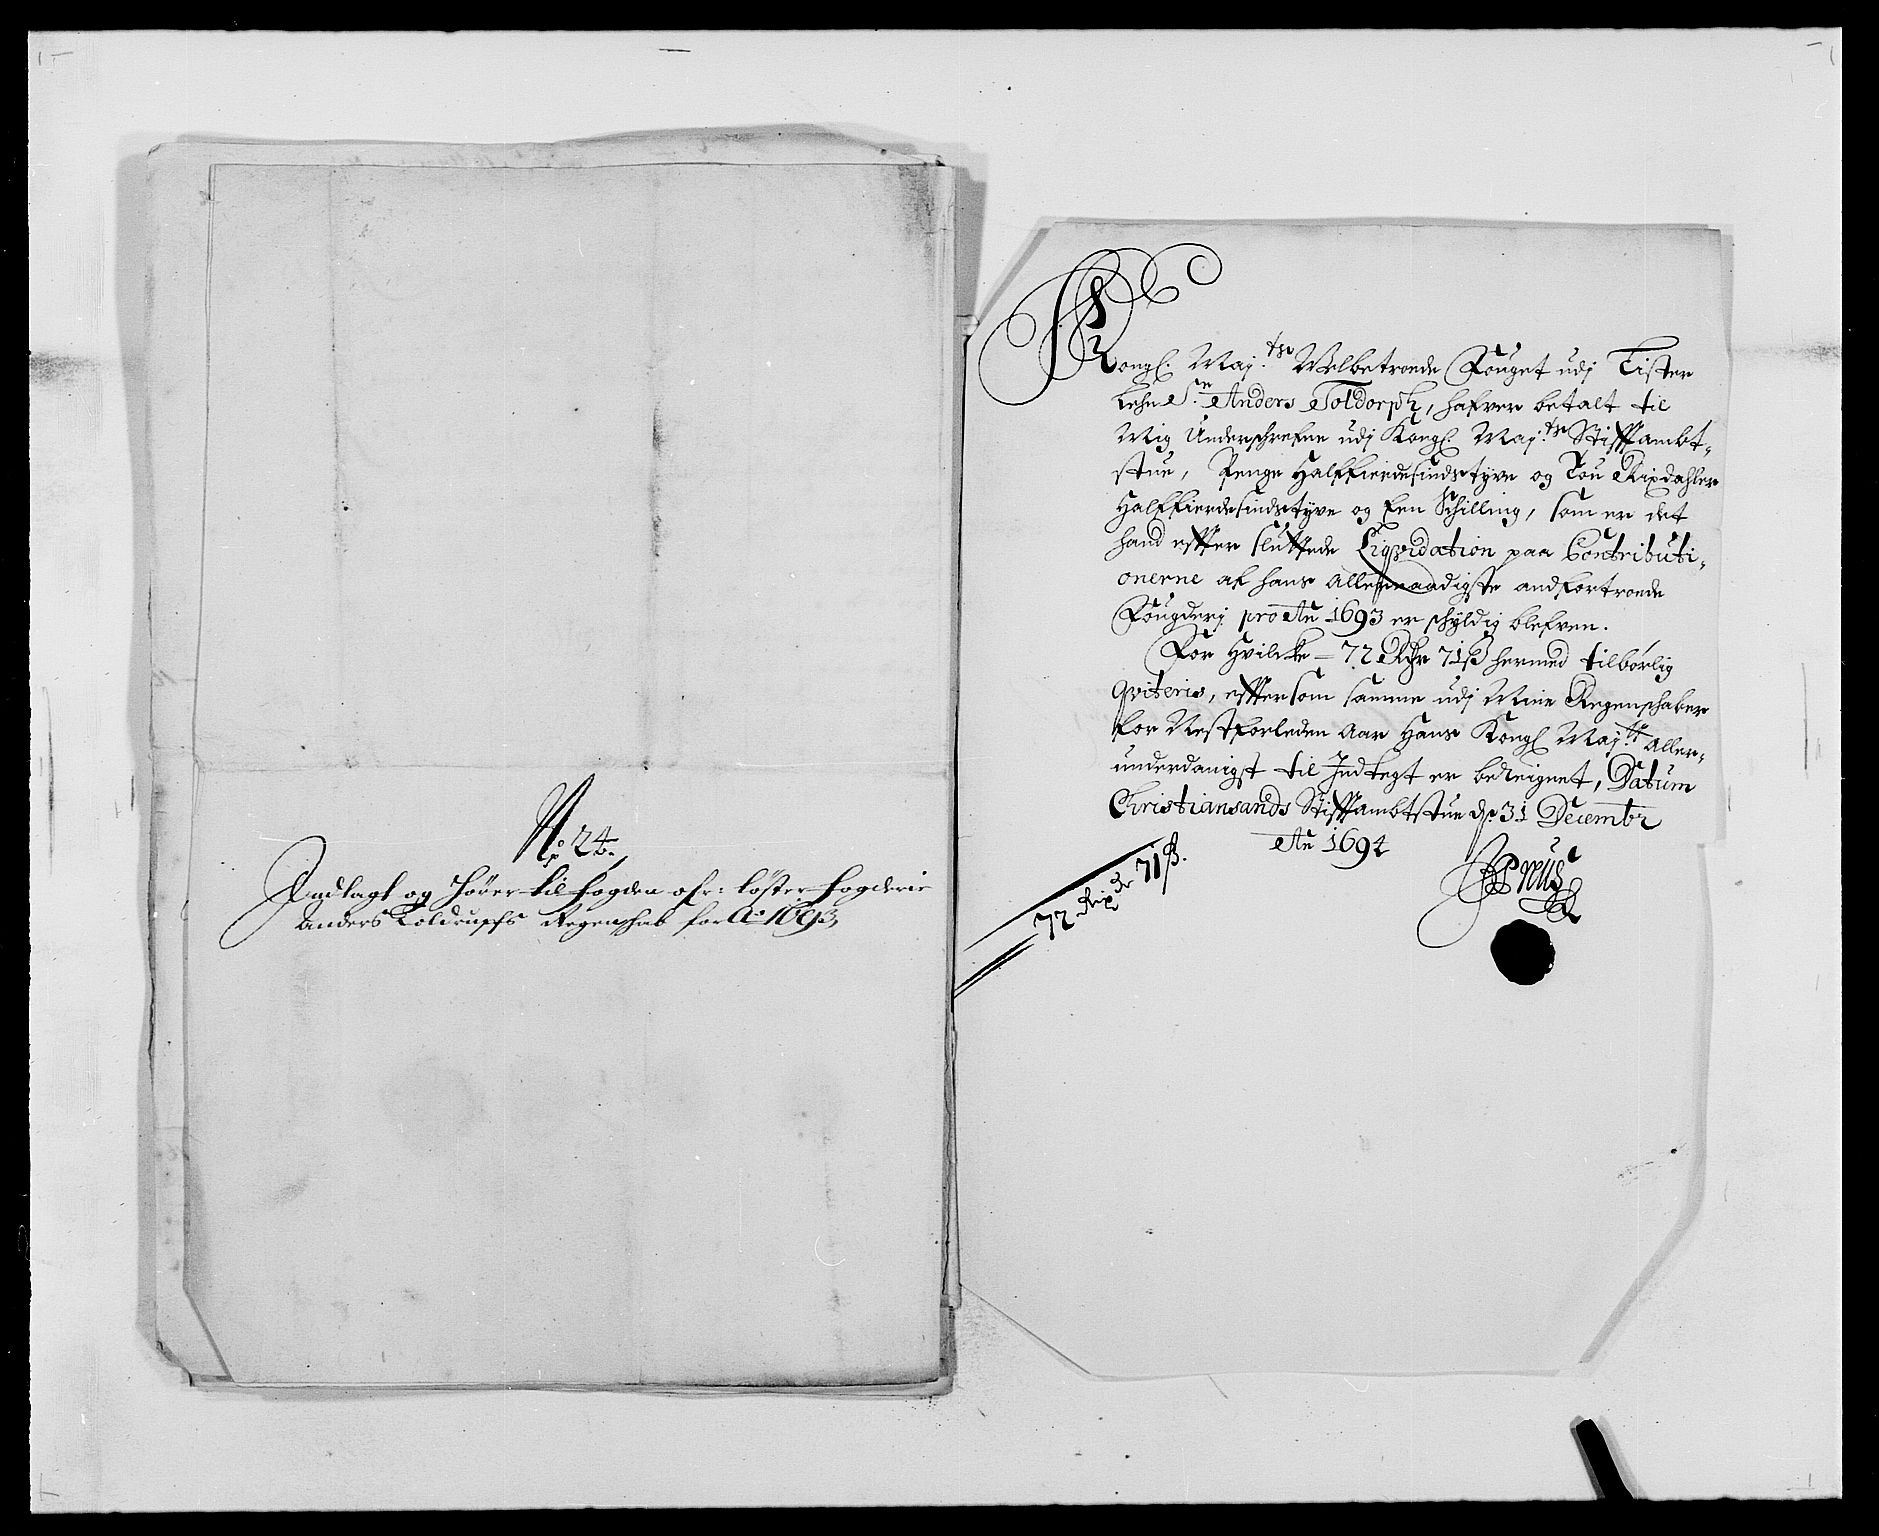 No. 24.
Indlagt og hører til fogden ofr: Lister fogderie
Anders Toldrupfs Regenschab for Ao 1693
Kongl. Maj.ts Welbetroede Fouget udj Lister
Lehn Sr. Anders Toldorph, hafver betalt til
Mig Underschrefne udj Kongl. Maj.ts Stifftambt-
stue, Penge Halffierdesindstyve og Tou Rixdahler
Halffierdesindstyve og Een Schilling, som er det
hand effter sluttede Liqvidation paa Contributi-
onerne af hans allernaadigste andfortroede
Fougderj pro Ao 1693 er schyldig blefven.
For Hvilcke - 72 Rdr 71 ß hermed tilbørlig
qviteris, efftersom samme udj Mine Regenschaber
for Nestforleden Aar Hans Kongl Maj.tt Aller-
underdanigst til Indtegt er bereignet, Datum
Christiansands Stifftambtstue d. 31 Decembr
Ao 1694
72 Rixdr 71 ß.